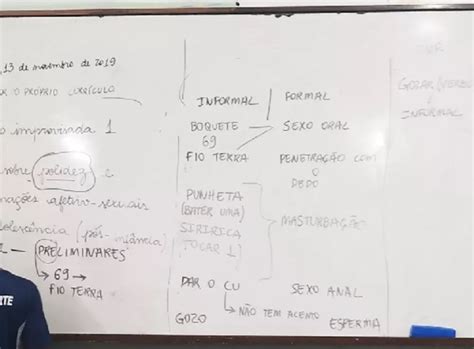 13 de novembro de 2019
R O PRÓPRIO CURRÍCULO
o improvisada 1
sobre polidez e
mações afetivo-sexuais
dolescência (pós-infância)
2 — PRELIMINARES
→ 69 →
FIO TERRA
INFORMAL / FORMAL
BOQUETE — SEXO ORAL
69
FIO TERRA PENETRAÇÃO COM
O
DEDO
PUNHETA
(BATER UMA) MASTURBAÇÃO
SIRIRICA
TOCAR 1
DAR O CU SEXO ANAL
→ NÃO TEM ACENTO
GOZO ESPERMA
GOZAR (VERBO)
INFORMAL
RTE